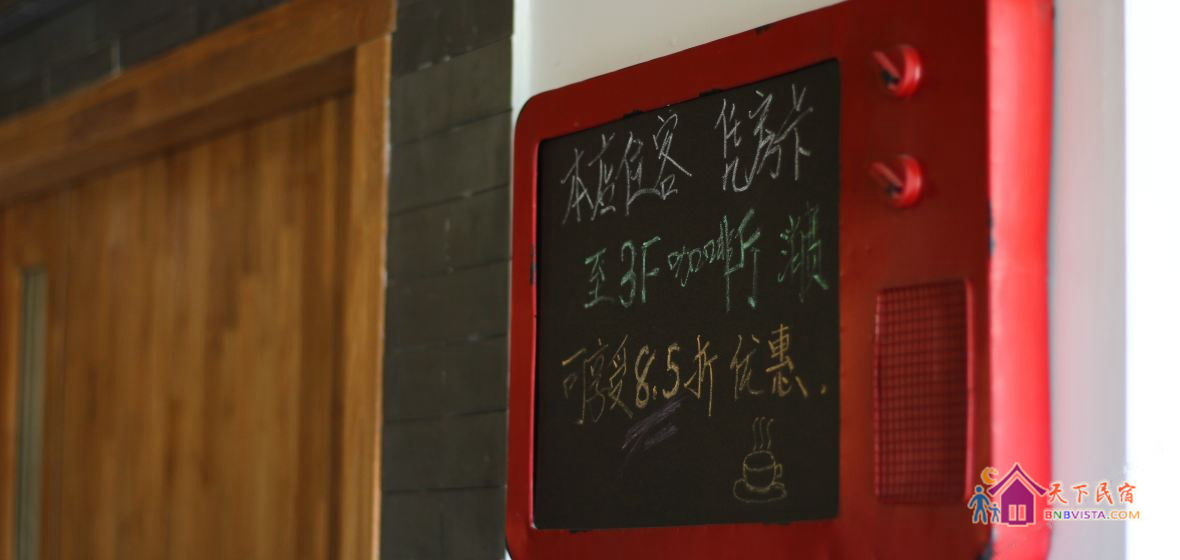 本店住客 凭房卡
至3F咖啡厅 消费
可享受8.5折优惠.
天下民宿
BNBVISTA.COM